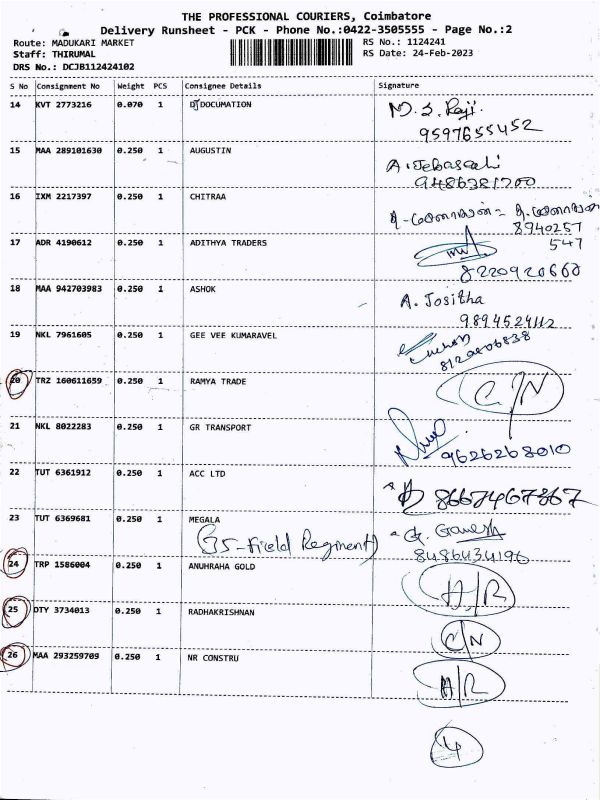 THE PROFESSIONAL COURIERS, Coimbatore
Delivery Runsheet - PCK - Phone No.:0422-3505555 - Page No.:2
Route: MADUKARI MARKET
RS No.: 1124241
Staff: THIRUMAL
RS Date: 24-Feb-2023
DRS No.: DCJB112424102
S No Consignment No Weight PCS Consignee Details Signature
14 KVT 2773216 0.070 1 DJDOCUMATION M. S. Raji.
9597655452
15 MAA 289101630 0.250 1 AUGUSTIN
9486381700
16 IXM 2217397 0.250 1 CHITRAA
8940257
547
17 ADR 4190612 0.250 1 ADITHYA TRADERS
8220920660
18 MAA 942703983 0.250 1 ASHOK A. Jositha
9894524112
19 NKL 7961605 0.250 1 GEE VEE KUMARAVEL
20 TRZ 160611659 0.250 1 RAMYA TRADE C/N
21 NKL 8022283 0.250 1 GR TRANSPORT
9626268010
22 TUT 6361912 0.250 1 ACC LTD 8667467367
23 TUT 6369681 0.250 1 MEGALA G. Ganesh
(35-Field Regiment) 8486434196
24 TRP 1586004 0.250 1 ANUHRAHA GOLD A/R
25 DTY 3734013 0.250 1 RADHAKRISHNAN C/N
26 MAA 293259709 0.250 1 NR CONSTRU A/R
4